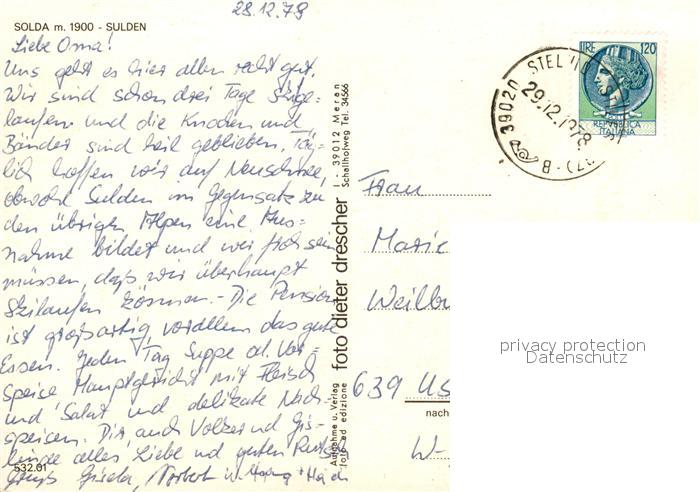 28.12.78
SOLDA m. 1900 - SULDEN
Liebe Oma!
Uns geht es hier allen recht gut.
Wir sind schon drei Tage Skige-
laufen und die Knochen und
Bänder sind heil geblieben. Täg-
lich hoffen wir auf Neuschnee,
obwohl Sulden im Gegensatz zu
den übrigen Alpen eine Aus-
nahme bildet und wir froh sein
müssen, daß wir überhaupt
Skilaufen können. - Die Pension
ist großartig, vor allem das gute
Essen. Jeden Tag Suppe od. Vor-
speise Hauptgericht mit Fleisch
und Salat und delikate Nach-
speisen. Dir, auch Volker und Gis-
linde alles Liebe und guten Rutsch
Gruß Gisela, Norbert u.
532.01
Aufnahme u. Verlag
foto ed edizione
foto dieter drescher
I - 39012 Meran
Schallhofweg Tel. 34566
LIRE 120
REPVBBLICA
ITALIANA
39020 STEL
29.12.1978
Frau
Marie
Weilb
639 Us
nach
W-
privacy protection
Datenschutz